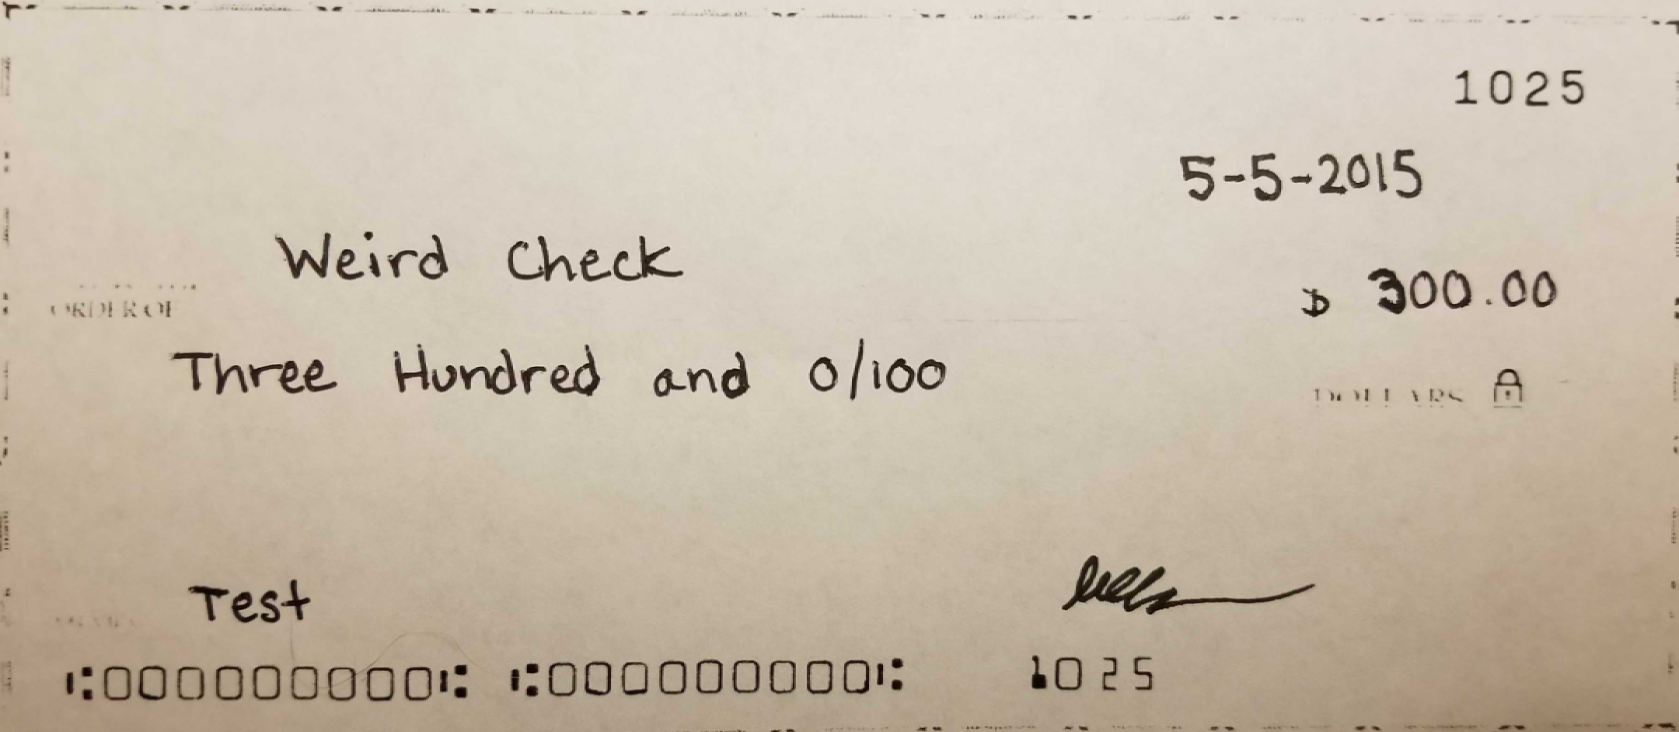 1025
5-5-2015
Weird Check
ORDER OF
$ 300.00
Three Hundred and 0/100
DOLLARS
Test
⑆000000000⑆ ⑆000000000⑆ 1025